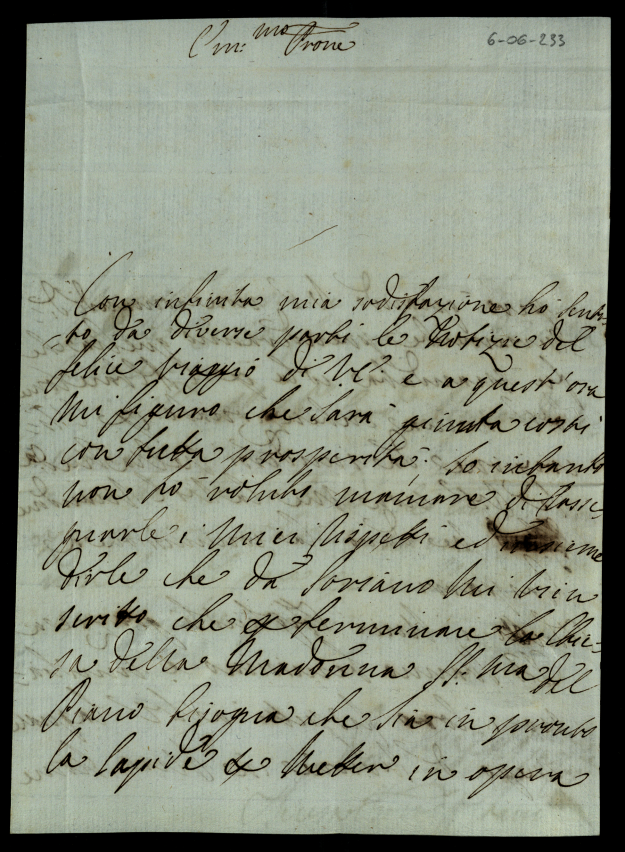 Em.mo Prone
6-06-233
Con infinita mia sodisfazione ho senti=
=to da diverse parti le Notizie del
felice viaggio di V.E. e a quest'ora
Mi figuro che sarà giunta costì
con tutta prosperità. Io intanto
non hò voluto mancare di rasse=
gnarle i Miei Rispetti ed insieme
dirle che da Soriano Mi vien
scritto che p terminare la Chie=
sa della Madonna SS.ma del
Piano bisogna che sia in pronto
la lapide p Metter in opera